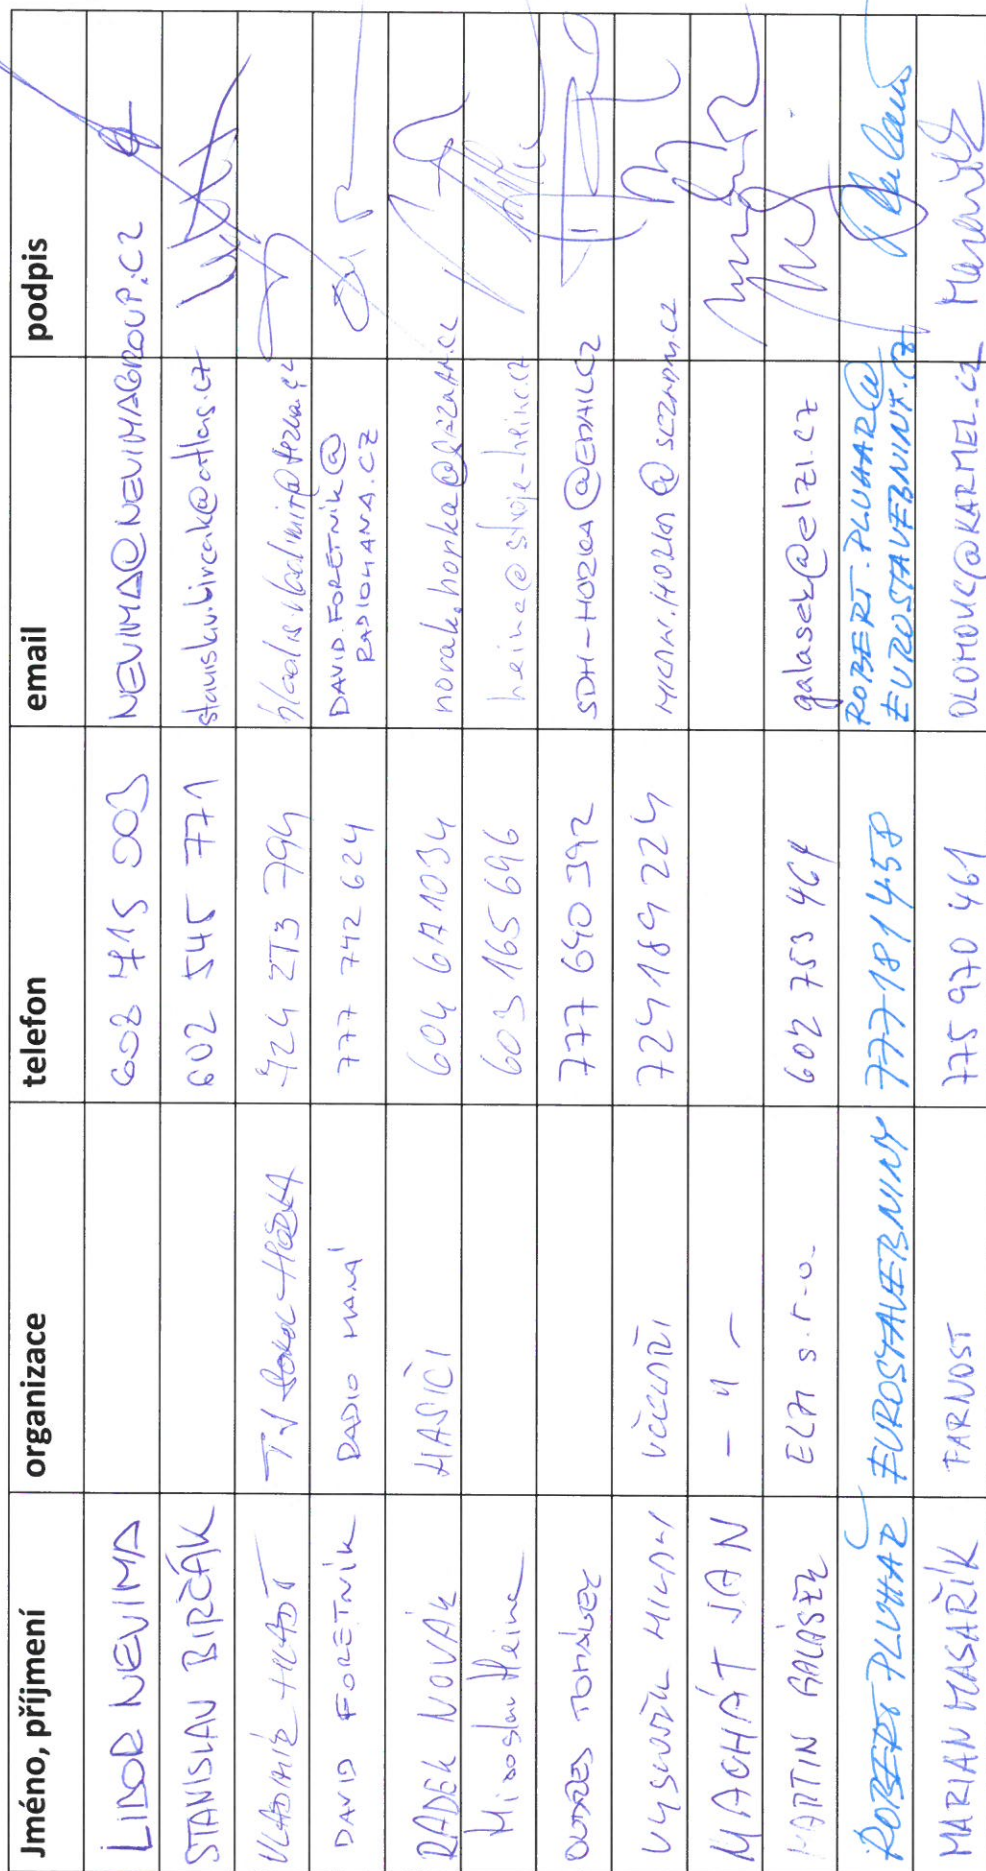 Jméno, příjmení organizace telefon email podpis
LIBOR NEVIMA 608 715 003 NEVIMA@NEVIMAGROUP.CZ
STANISLAV BIRČÁK 602 545 771 stanislav.bircak@atlas.cz
VLADIMÍR 724 273 794
DAVID FORETNÍK RADIO HANÁ 777 742 624 DAVID.FORETNIK@
RADIOHANA.CZ
RADEK NOVÁK HASIČI 604 671034 novak.honka@seznam.cz
Miroslav Heina 603 165 696 heina@stroje-heina.cz
777 640 392 SDH-HORKA@EMAIL.CZ
MILAN VČELAŘI 724 189 224 @SEZNAM.CZ
MACHÁT JAN - 11 -
MARTIN GALÁSEK ELZI s.r.o. 602 753 464 galasek@elzi.cz
ROBERT PLUHAŘ EUROSTAVEBNINY 777 181 458 ROBERT.PLUHAR@
EUROSTAVEBNINY.CZ
MARIAN MASAŘÍK FARNOST 775 970 461 OLOMOUC@KARMEL.CZ